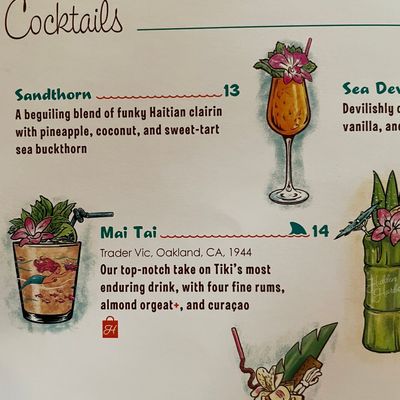 Cocktails
Sandthorn 13
A beguiling blend of funky Haitian clairin
with pineapple, coconut, and sweet-tart
sea buckthorn
Sea Dev
Devilishly
vanilla, an
Mai Tai 14
Trader Vic, Oakland, CA, 1944
Our top-notch take on Tiki's most
enduring drink, with four fine rums,
almond orgeat+, and curaçao
H